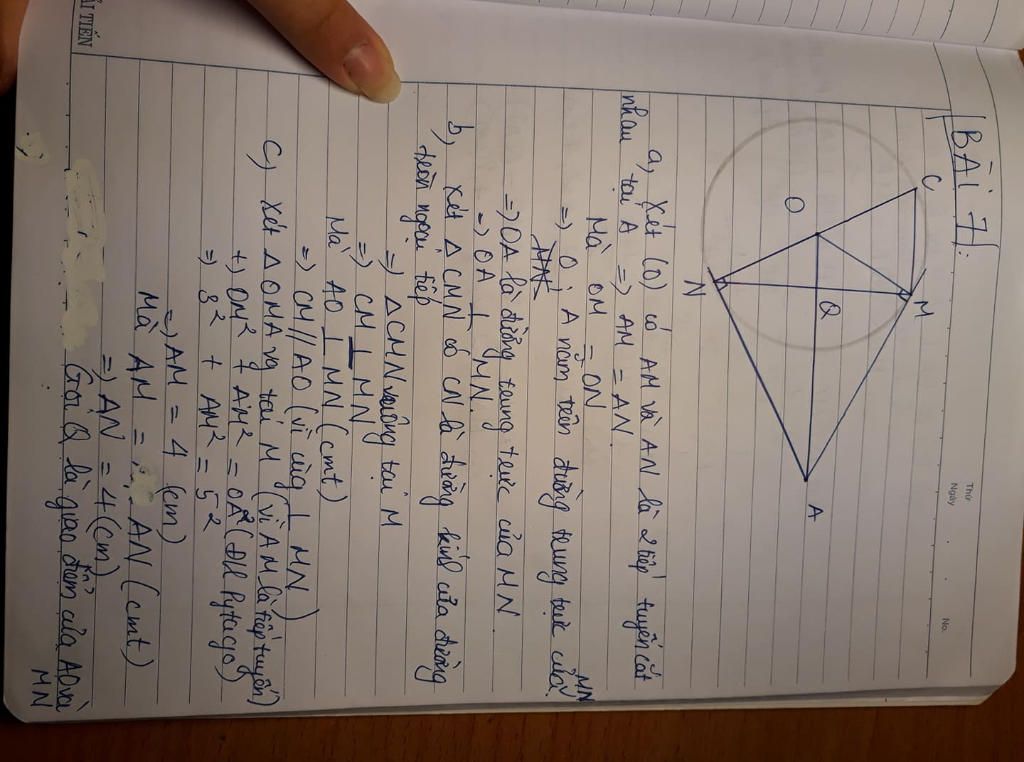 Thứ
Ngày
No.
BÀI 7:
C
M
O
Q
N
A
a, Xét (O) có AM và AN là 2 tiếp tuyến cắt
nhau tại A => AM = AN.
Mà OM = ON
=> O, A nằm trên đường trung trực của MN
=> OA là đường trung trực của MN.
=> OA ⊥ MN.
b, Xét △ CMN có CN là đường kính của đường
tròn ngoại tiếp
=> △ CMN vuông tại M
=> CM ⊥ MN
Mà AO ⊥ MN (cmt)
=> CM // AO (vì cùng ⊥ MN)
c, Xét △ OMA vg tại M (vì AM là tiếp tuyến)
+) OM² + AM² = OA² (ĐLí Pytago)
=> 3² + AM² = 5²
=> AM = 4 (cm)
Mà AM = AN (cmt)
=> AN = 4 (cm)
Gọi Q là giao điểm của AO và
MN
ẢI TIẾN